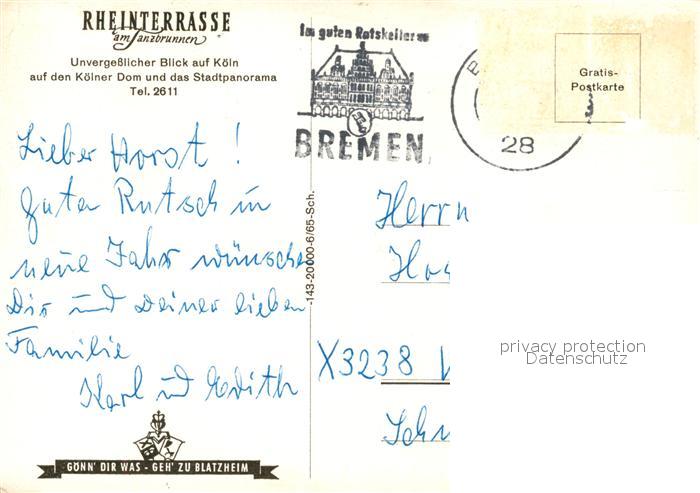 RHEINTERRASSE
am Tanzbrunnen
Unvergeßlicher Blick auf Köln
auf den Kölner Dom und das Stadtpanorama
Tel. 2611
Im guten Ratskeller
BREMEN
28
Gratis-
Postkarte
Lieber Horst !
guten Rutsch in
neue Jahr wünschen
Dir und Deiner lieben
Familie
Karl und Edith
-143-20000-6/65-Sch.
Herrn
X3238
privacy protection
Datenschutz
GÖNN' DIR WAS - GEH' ZU BLATZHEIM